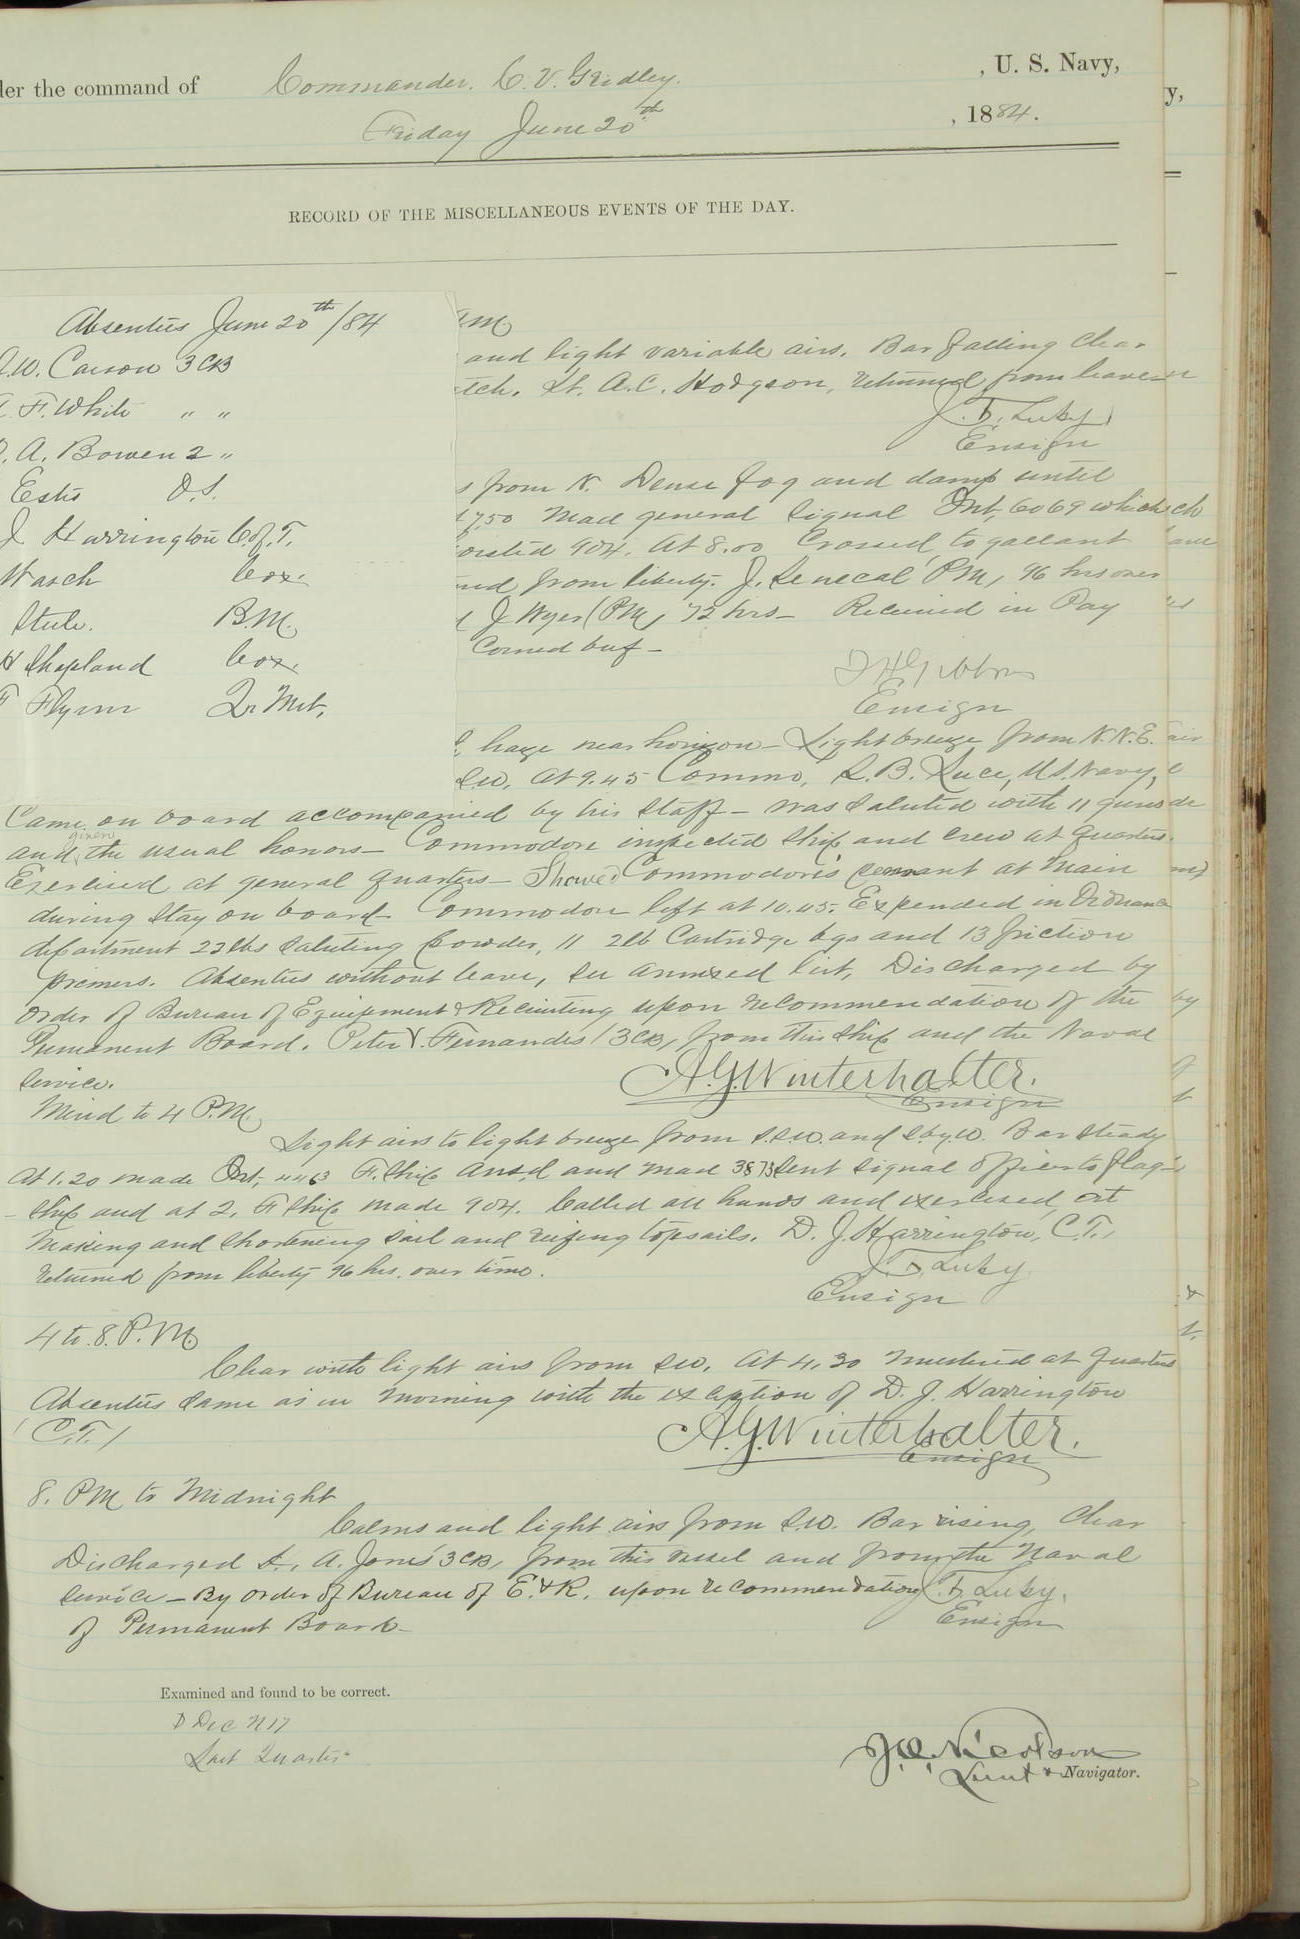 der the command of Commander. C. V. Gridley. , U. S. Navy,
Friday June 20th , 1884.
RECORD OF THE MISCELLANEOUS EVENTS OF THE DAY.
Absenties June 20th/84
W. Carson 3 CB
F. White " "
A. Bowen 2 "
Estis O.S.
J Harrington C.of.T.
Wasch Cox.
Steele. B.M.
H Shapland Cox.
F Flynn Qr Mst.
AM
and light variable airs. Bar falling Clear
tch. Lt. A.C. Hodgson, returned from leave
J. F. Luby
Ensign
s from N. Dense fog and damp until
7.50 Mad general signal Int, 6069 which
oisted 904. At 8.00 Crossed to gallant
ned from liberty. J. Senecal PM, 96 hrs over
J Wyer (PM, 72 hrs - Received in Pay
Corned buf -
Ensign
haze near horizon - Light breeze from N.N.E.
SW. At 9.45 Commo, S.B. Luce, U.S. Navy,
Came on board accompanied by his staff - was saluted with 11 guns
and given the usual honors - Commodore inspected ship and crew at quarters.
Exercised at general quarters - Showed Commodore's pennant at Main
during stay on board. Commodore left at 10.45. Expended in Ordnance
department 22 lbs saluting powder, 11 2lb Cartridge bgs and 13 friction
primers. Absenties without leave, see annexed list, Discharged by
order of Bureau of Equipment & Recruiting upon recommendation of the
Permanent Board. Peter V. Fernandes (3CB, from this ship and the Naval
Service.
A.G. Winterhalter.
Ensign
Mirid to 4 P.M.
Light airs to light breeze from S.S.W. and S.by.W. Bar steady
At 1.20 made Int, 4463 F. Ship Ansd, and mad 3873 sent signal officer to flag-
ship and at 2. F Ship made 904. Called all hands and exercised at
Making and shortening sail and reefing topsails. D. J. Harrington, C.T.,
returned from liberty 96 hrs. over time.
J. F. Luby
Ensign
4 to 8. P.M.
Clear with light airs from SW. At 4.30 mustered at quarters
Absenties same as in morning with the exception of D. J. Harrington
(C.T.)
A.G. Winterhalter.
Ensign
8. PM to Midnight
Calms and light airs from S.W. Bar rising, Clear
Discharged A. Jones 3CB, from this vessel and from the Naval
service - By order of Bureau of E. & R. upon recommendation
of Permanent Board -
J. F. Luby.
Ensign
Examined and found to be correct.
D Dec N 17
Last Quarter
Lieut & Navigator.